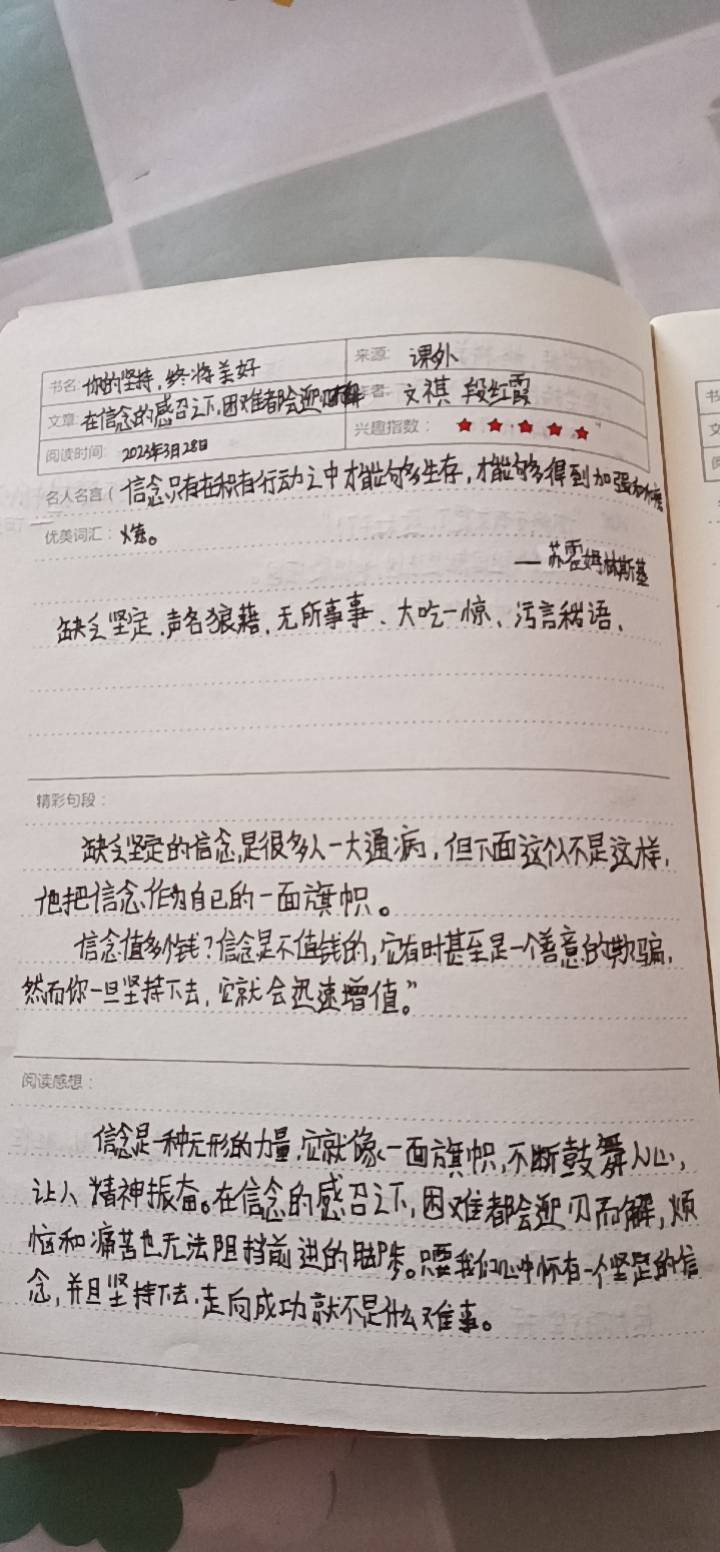 书名: 你的坚持,终将美好
来源: 课外
文章: 在信念的感召之下,困难都会迎刃而解
作者: 文祺 段红霞
阅读时间: 2023年3月28日
兴趣指数: ★ ★ ★ ★ ★
名人名言( 信念只有在积极行动之中才能够多生存,才能够多得到加强和磨
优美词汇: 炼。
— 苏霍姆林斯基
缺乏坚定、声名狼藉、无所事事、大吃一惊、污言秽语、
精彩句段:
缺乏坚定的信念,是很多人一大通病,但下面这个人不是这样,
他把信念作为自己的一面旗帜。
信念值多少钱?信念是不值钱的,它有时甚至是一个善意的欺骗,
然而你一旦坚持下去,它就会迅速增值。”
阅读感想:
信念是一种无形的力量,它就像一面旗帜,不断鼓舞人心,
让人精神振奋。在信念的感召之下,困难都会迎刃而解,烦
恼和痛苦也无法阻挡前进的脚步。只要我们心中怀有一个坚定的信
念,并且坚持下去,走向成功就不是什么难事。